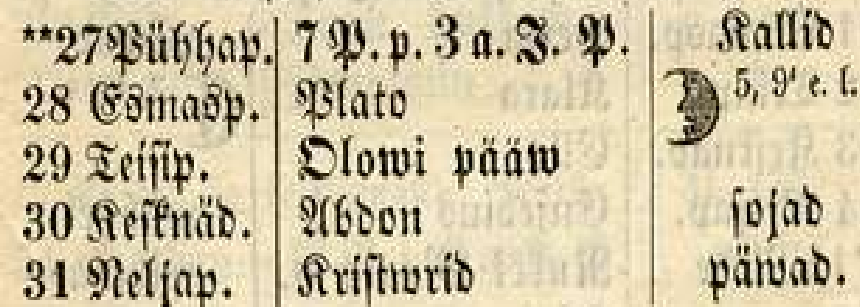 **27 Pühhap. 7 P. p. 3 a. J. P. Kallid
28 Esmasp. Plato 5, 9' e. l.
29 Teisip. Olowi pääw
30 Kesknäd. Abdon sojad
31 Neljap. Kristwrid päwad.